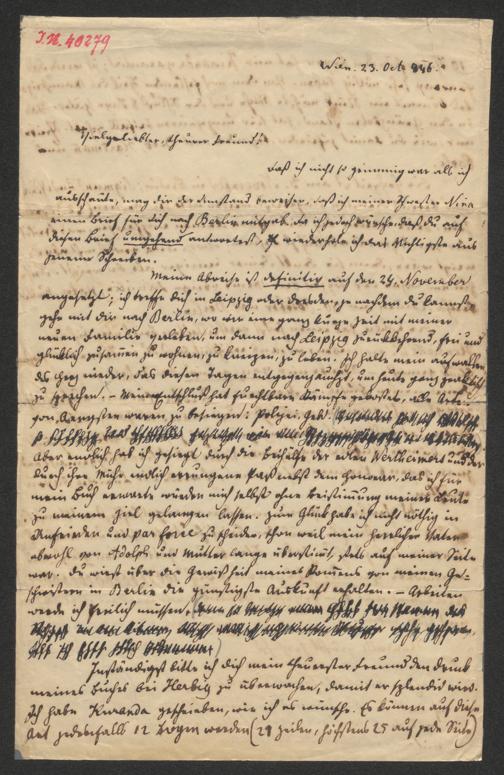 I.N. 40279
Wien. 23. Oct 846.
Vielgeliebter, theurer Freund!
Daß ich nicht so grimmig war als ich
ausschaute, mag dir der Umstand beweisen, daß ich meiner Schwester Nina
einen Brief für dich nach Berlin mitgab. Da ich jedoch wünsche, daß du auf
diesen Brief umgehend antwortest, so wiederhole ich das Wichtigste aus
jenem Schreiben.
Meine Abreise ist definitiv auf den 24. November
angesetzt; ich treffe dich in Leipzig oder Dresden, je nachdem du kannst
gehe mit dir nach Berlin, wo wir eine ganz kurze Zeit mit meiner
neuen Familie verleben, um dann nach Leipzig zurückkehrend, frei und
glücklich zusammen zu wohnen, zu kneipen, zu leben. Ich halte mein aufwallendes
Herz nieder, das diesen Tagen entgegenjauchzt, um heute ganz praktisch
zu sprechen. – Mein Entschluß hat furchtbare Kämpfe gekostet, alle Arten
von Aengsten waren zu besiegen: Polizei, Geld.
Aber endlich hab ich gesiegt durch die Beihülfe der edlen Wertheimers und der
durch ihre Mühe endlich errungene Paß nebst dem Honorar, das ich für
mein Buch erwarte würden mich selbst ohne Beistimmung meiner Leute
zu meinem Ziel gelangen lassen. Zum Glück habe ich nicht nöthig in
Unfrieden und par force zu scheiden, schon weil mein herrlicher Vater
obwohl von Adolph und Mutter lange überstimmt, stets auf meiner Seite
war. Du wirst über die Gewißheit meines Kommens von meinen Geschwistern
in Berlin die günstigste Auskunft erhalten. – Arbeiten
werde ich freilich müssen,
Inständigst bitte ich dich mein theuerster Freund den Druck
meines Buches bei Herbig zu überwachen, damit er splendid wird.
Ich habe Kuranda geschrieben, wie ich es wünsche. Es können auf diese
Art jedenfalls 12 Bogen werden (24 Zeilen, höchstens 25 auf jede Seite)